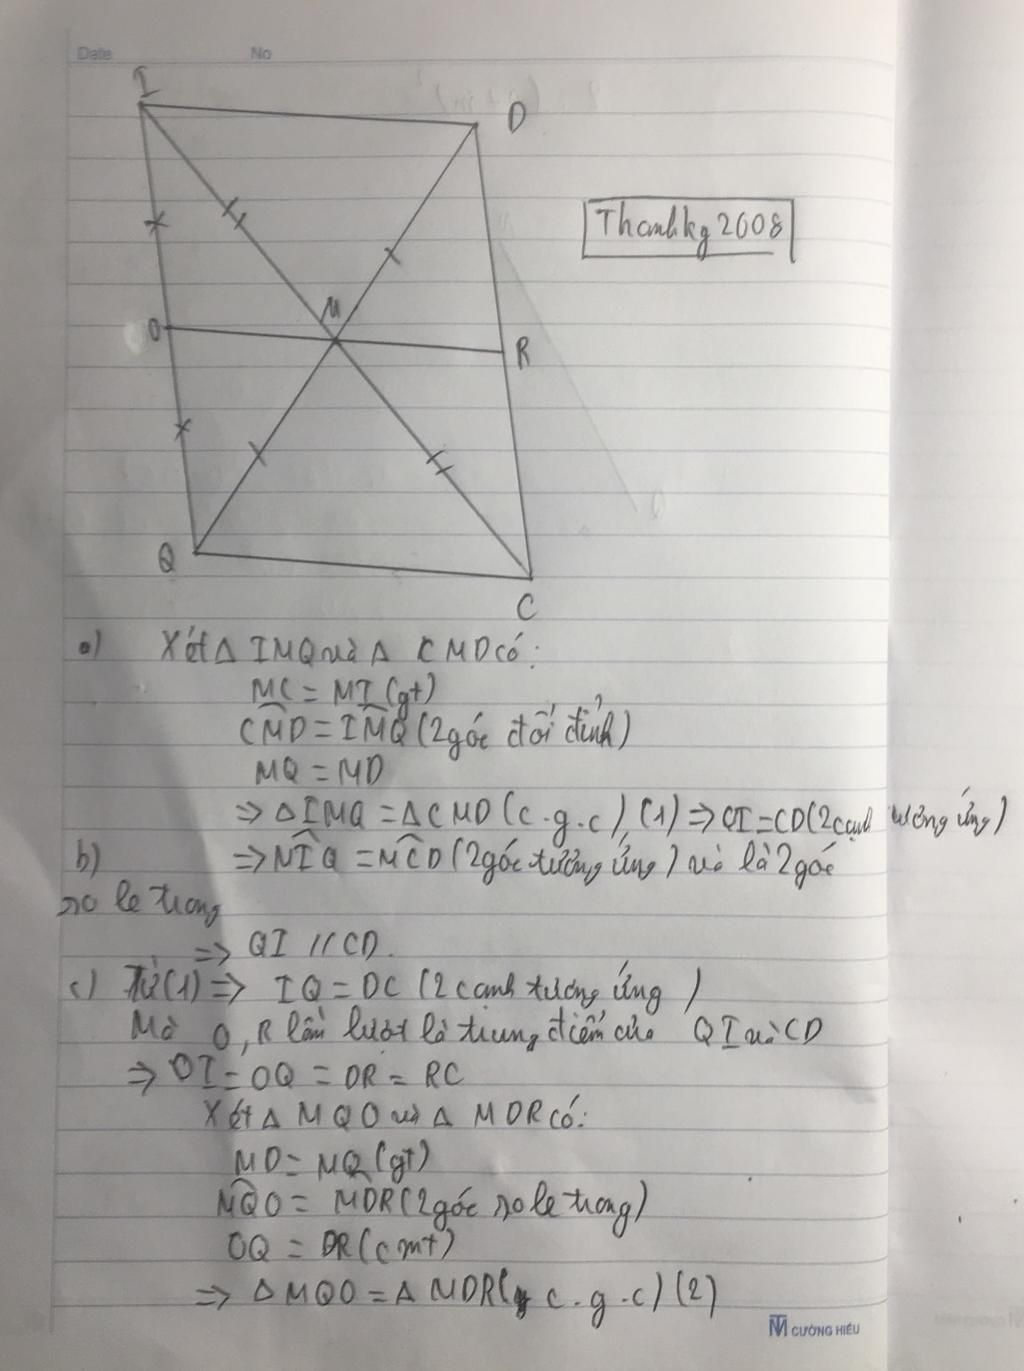 Date No
I
D
Thanhkg2008
M
O
R
Q
C
a) Xét Δ IMQ và Δ CMD có:
MC = MI (gt)
CMD = IMQ (2 góc đối đỉnh)
MQ = MD
=> Δ IMQ = Δ CMD (c.g.c) (1) => QI = CD (2 cạnh tương ứng)
b) => MIQ = MCD (2 góc tương ứng) và là 2 góc
so le trong
=> QI // CD.
c) Từ (1) => IQ = DC (2 cạnh tương ứng)
Mà O, R lần lượt là trung điểm của QI và CD
=> OI = OQ = DR = RC
Xét Δ MQO và Δ MDR có:
MD = MQ (gt)
MQO = MDR (2 góc so le trong)
OQ = DR (cmt)
=> Δ MQO = Δ MDR (c.g.c) (2)
CƯỜNG HIẾU